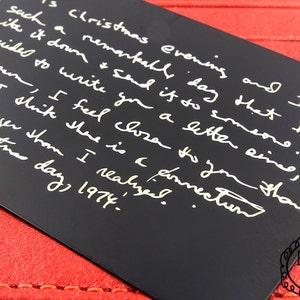 is Christmas evening and I
such a remarkable day that I
ite it down & send it to someone.
ided to write you a letter
I feel closer to you than
I think there is a connection
than I realized.
day, 1974.